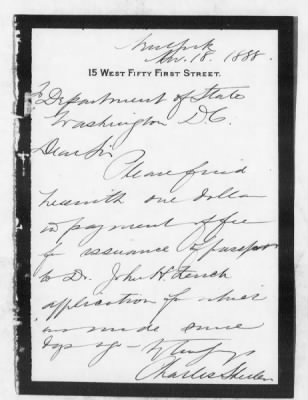 New York
Nov. 18. 1888.
15 WEST FIFTY FIRST STREET.
To Department of State
Washington D.C.
Dear Sir
Please find
herewith one dollar
in payment of fee
for issuance of passport
to Dr. John H.
application for which
was made some
days ago -
Charles